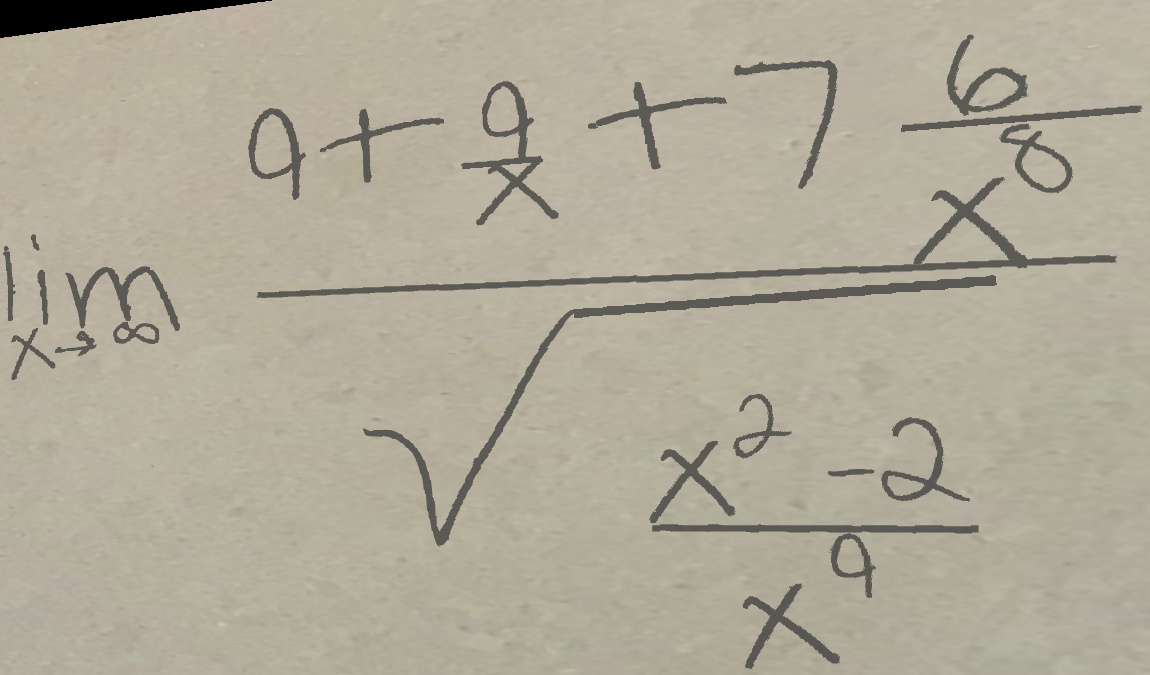 \lim_{x \to \infty} \frac{9 + \frac{9}{x} + 7 \frac{6}{x^8}}{\sqrt{\frac{x^2 - 2}{x^9}}}